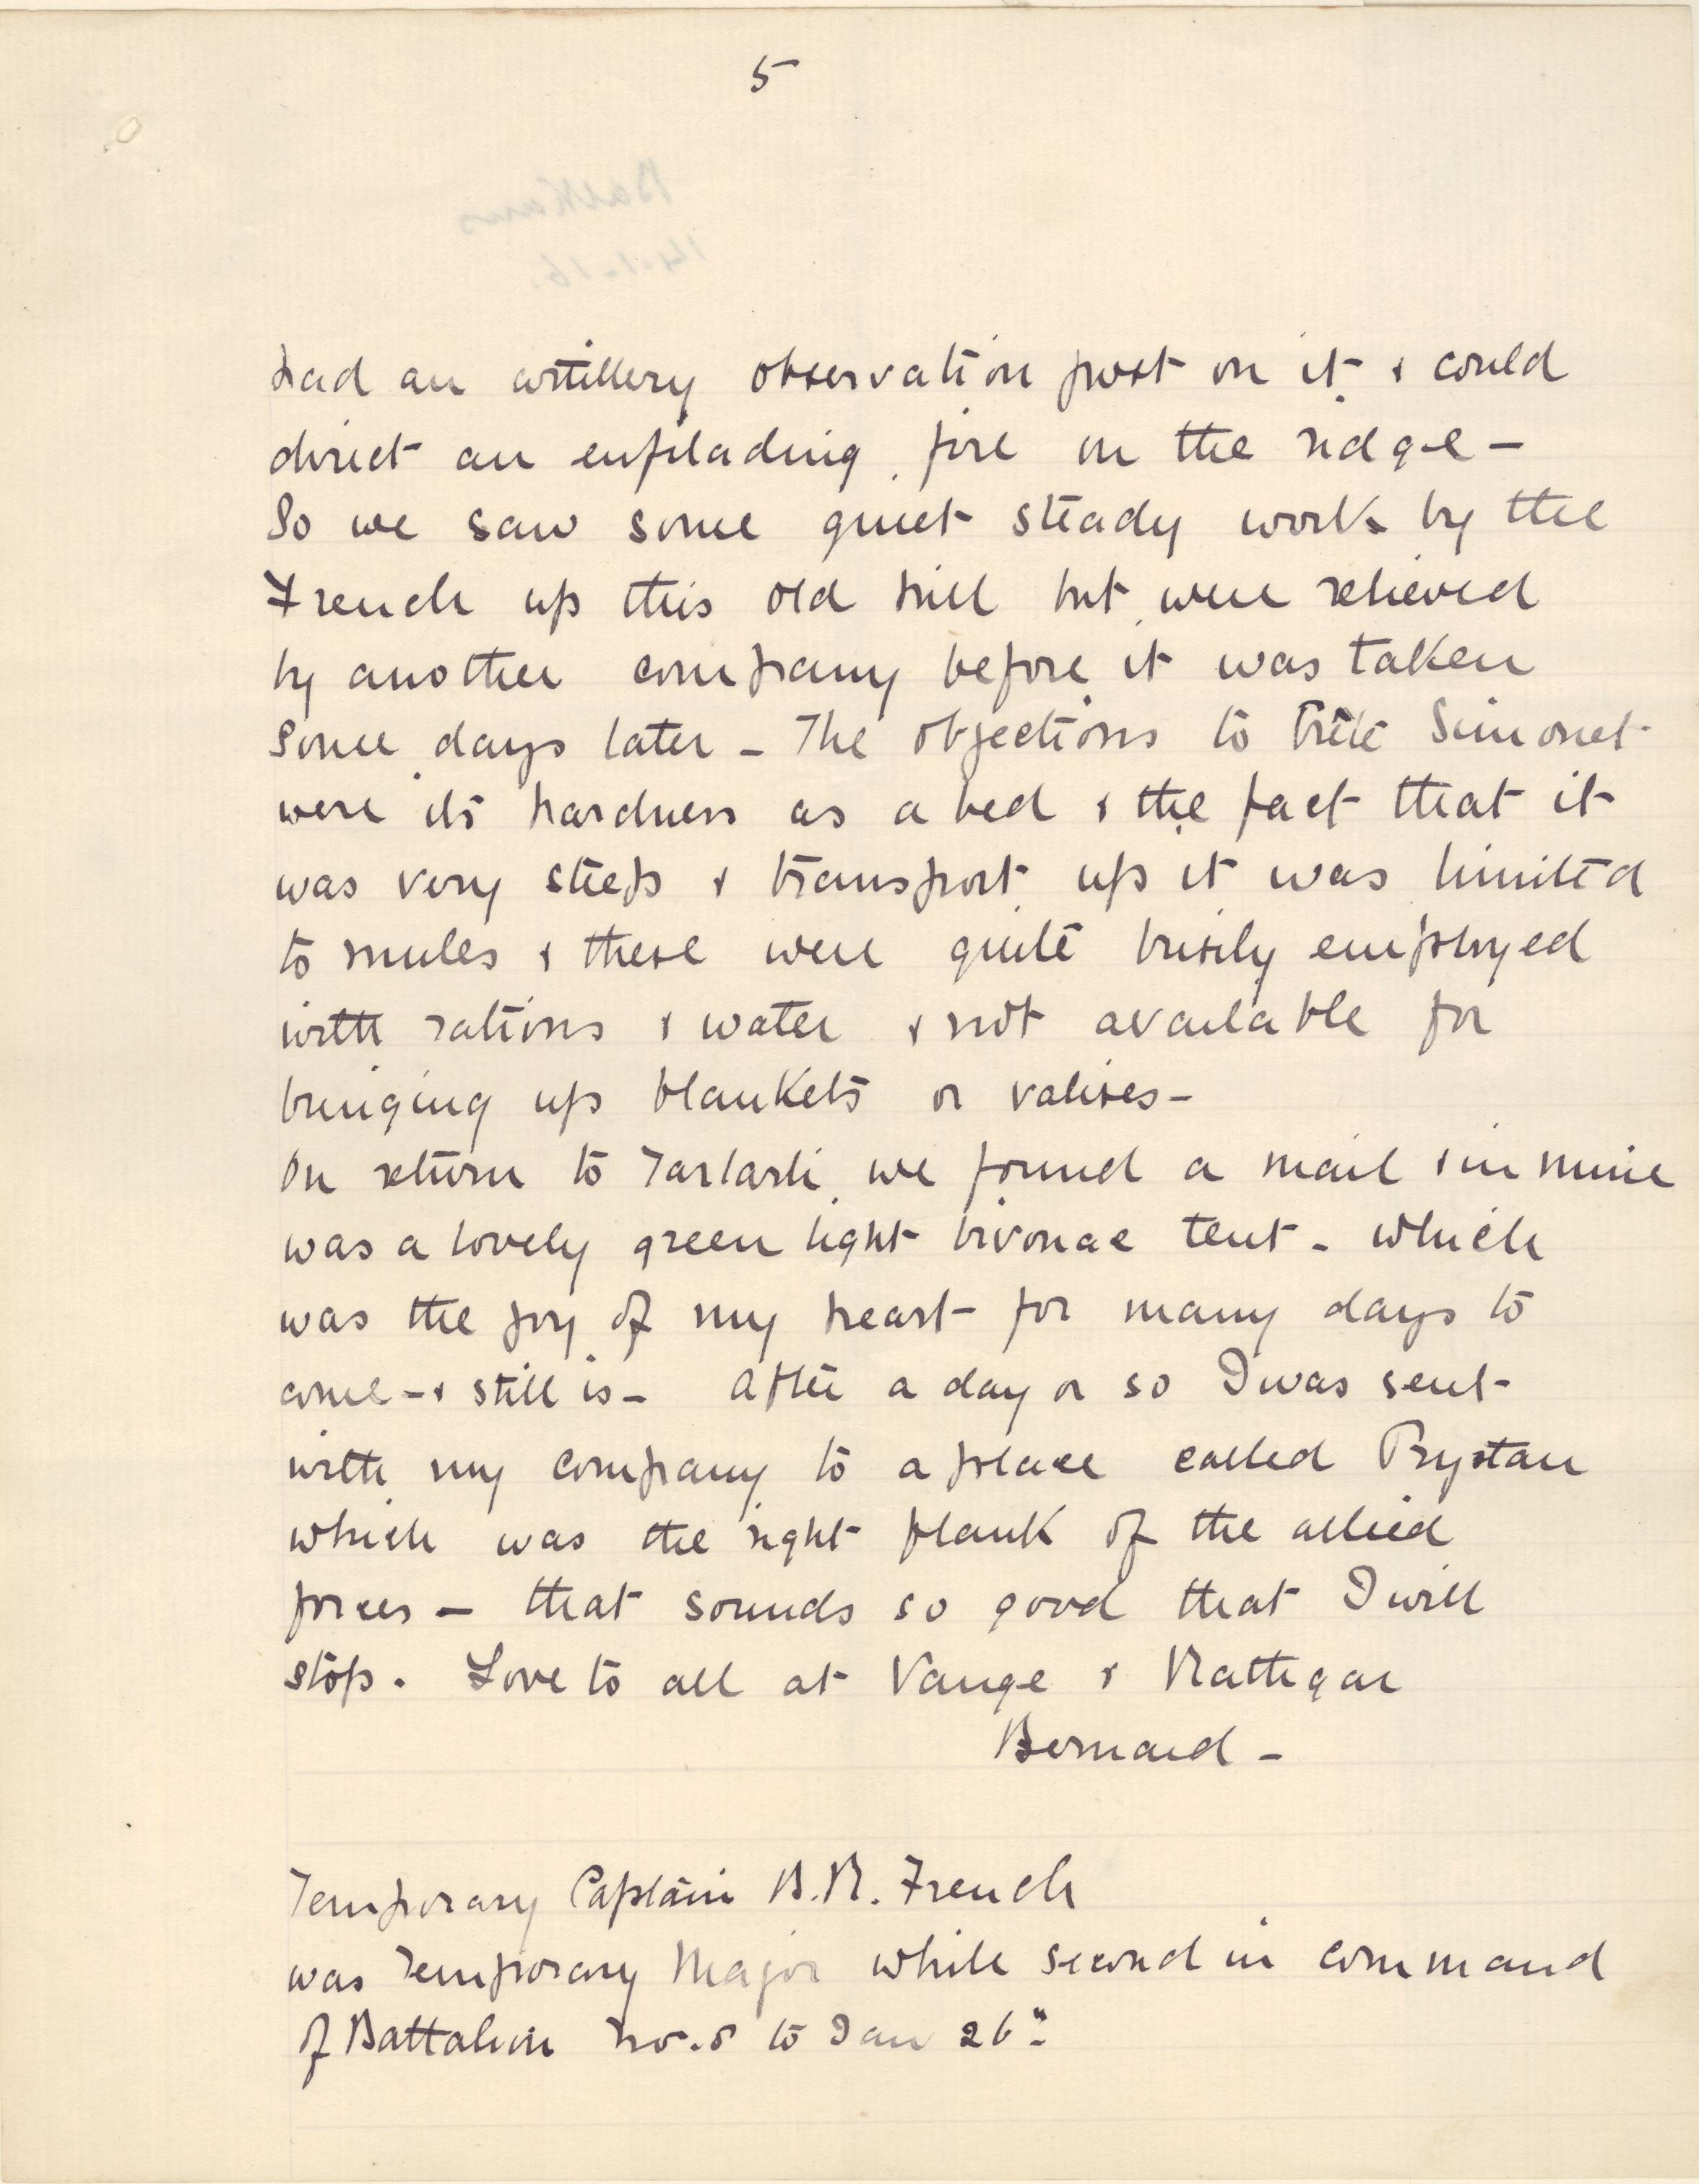 5
Balkans
14.1.16.
had an artillery observation post on it & could
direct an enfilading fire on the ridge –
So we saw some quiet steady work by the
French up this old hill but were relieved
by another company before it was taken
some days later – The objections to Tête Simonet
were its hardness as a bed & the fact that it
was very steep & transport up it was limited
to mules & these were quite busily employed
with rations & water & not available for
bringing up blankets or valises –
On return to Tartarli we found a mail & in mine
was a lovely green light bivouac tent – which
was the joy of my heart for many days to
come – & still is – After a day or so I was sent
with my company to a place called Prystan
which was the right flank of the allied
forces – that sounds so good that I will
stop. Love to all at Vange &
Bernard –
Temporary Captain B.R. French
was Temporary Major while second in command
of Battalion Nov. 8 to Jan 26"